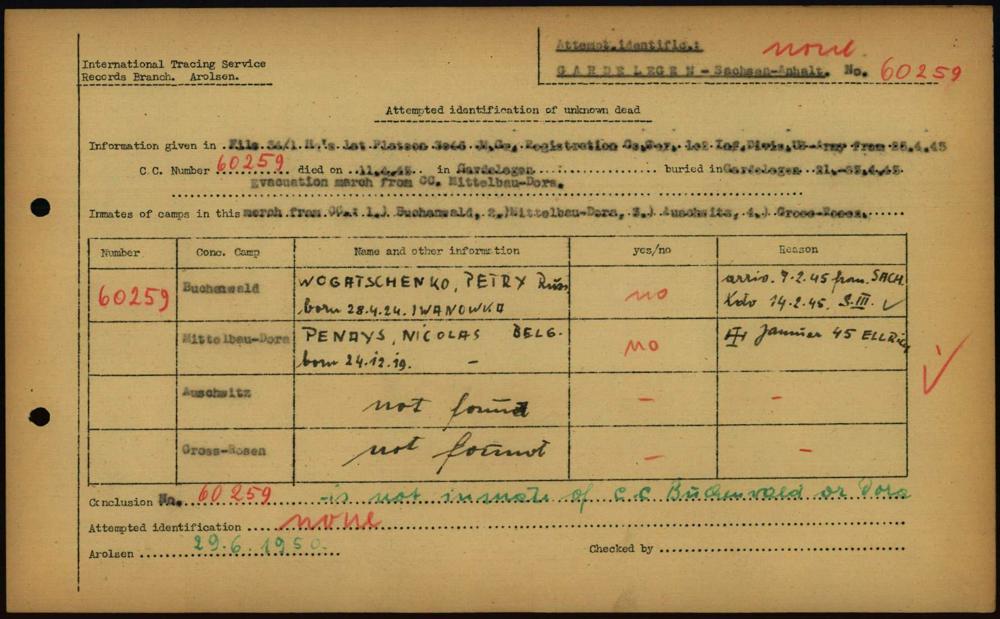 Attempt.identific.: none
International Tracing Service
Records Branch. Arolsen.
GARDELEGEN - Sachsen-Anhalt. No. 60259
Attempted identification of unknown dead
Information given in File 34/1 H.'s 1st Platoon 3046 Registration from 25.4.45
C.C. Number 60259 died on 11.4.45 in Gardelegen buried in Gardelegen 21.-
Evacuation march from CC. Mittelbau-Dora.
Inmates of camps in this march from CC.: 1.) Buchenwald, 2.) Mittelbau-Dora, 3.) Auschwitz, 4.) Gross-Rosen.
Number Conc. Camp Name and other information yes/no Reason
60259 Buchenwald WOGATSCHENKO, PETRY Russ no arriv. 7-2.45 from SACH.
born 28.4.24. IWANOWKA Kdo 14-2.45 S.III.
Mittelbau-Dora PENAYS, NICOLAS BELG. no Januer 45 ELLRICH
born 24.12.19. -
Auschwitz not found - -
Gross-Rosen not found - -
Conclusion No. 60259 -is not inmate of C.C Buchenwald or Dora
Attempted identification none
Arolsen 29.6.1950. Checked by